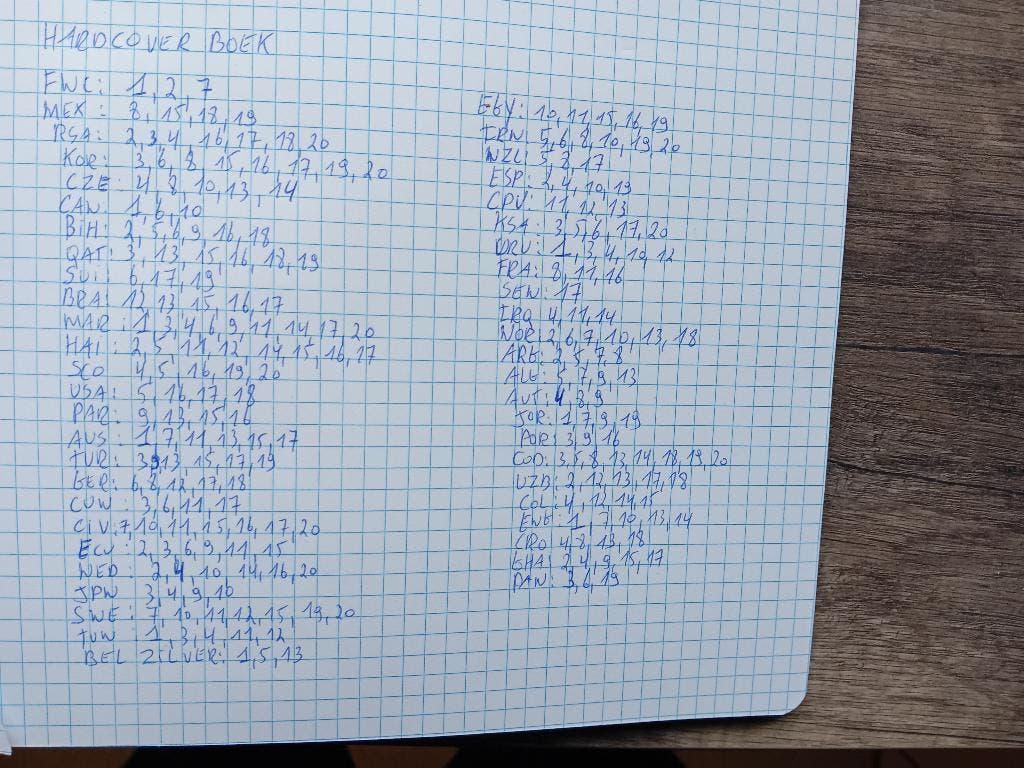 HARDCOVER BOEK
FWC: 1, 2, 7
MEX: 8, 15, 18, 19
RSA: 2, 3, 4, 16, 17, 18, 20
KOR: 3, 6, 8, 15, 16, 17, 19, 20
CZE: 4, 8, 10, 13, 14
CAN: 1, 6, 10
BIH: 2, 5, 6, 9, 16, 18
QAT: 3, 13, 15, 16, 18, 19
SUI: 6, 17, 19
BRA: 12, 13, 15, 16, 17
MAR: 1, 3, 4, 6, 9, 11, 14, 17, 20
HAI: 2, 5, 11, 12, 14, 15, 16, 17
SCO: 4, 5, 16, 19, 20
USA: 5, 16, 17, 18
PAR: 9, 13, 15, 16
AUS: 1, 7, 11, 13, 15, 17
TUR: 3, 9, 13, 15, 17, 19
GER: 6, 8, 12, 17, 18
CUW: 3, 6, 11, 17
CIV: 7, 10, 11, 15, 16, 17, 20
ECU: 2, 3, 6, 9, 11, 15
NED: 2, 4, 10, 14, 16, 20
JPN: 3, 4, 9, 10
SWE: 7, 10, 11, 12, 15, 19, 20
TUN: 1, 3, 4, 11, 12
BEL ZILVER: 1, 5, 13
EGY: 10, 11, 15, 16, 19
IRN: 5, 6, 8, 10, 19, 20
NZL: 5, 7, 17
ESP: 2, 4, 10, 19
CPV: 11, 12, 13
KSA: 3, 5, 6, 17, 20
URU: 1, 3, 4, 10, 12
FRA: 8, 11, 16
SEN: 17
IRQ: 4, 11, 14
NOR: 2, 6, 7, 10, 13, 18
ARG: 2, 5, 7, 8
ALG: 5, 7, 9, 13
AUT: 4, 8, 9
JOR: 1, 7, 9, 19
POR: 3, 9, 16
COD: 3, 5, 8, 13, 14, 18, 19, 20
UZB: 2, 12, 13, 17, 18
COL: 4, 12, 14, 15
ENG: 1, 7, 10, 13, 14
CRO: 4, 8, 13, 18
GHA: 2, 4, 9, 15, 17
PAN: 3, 6, 19